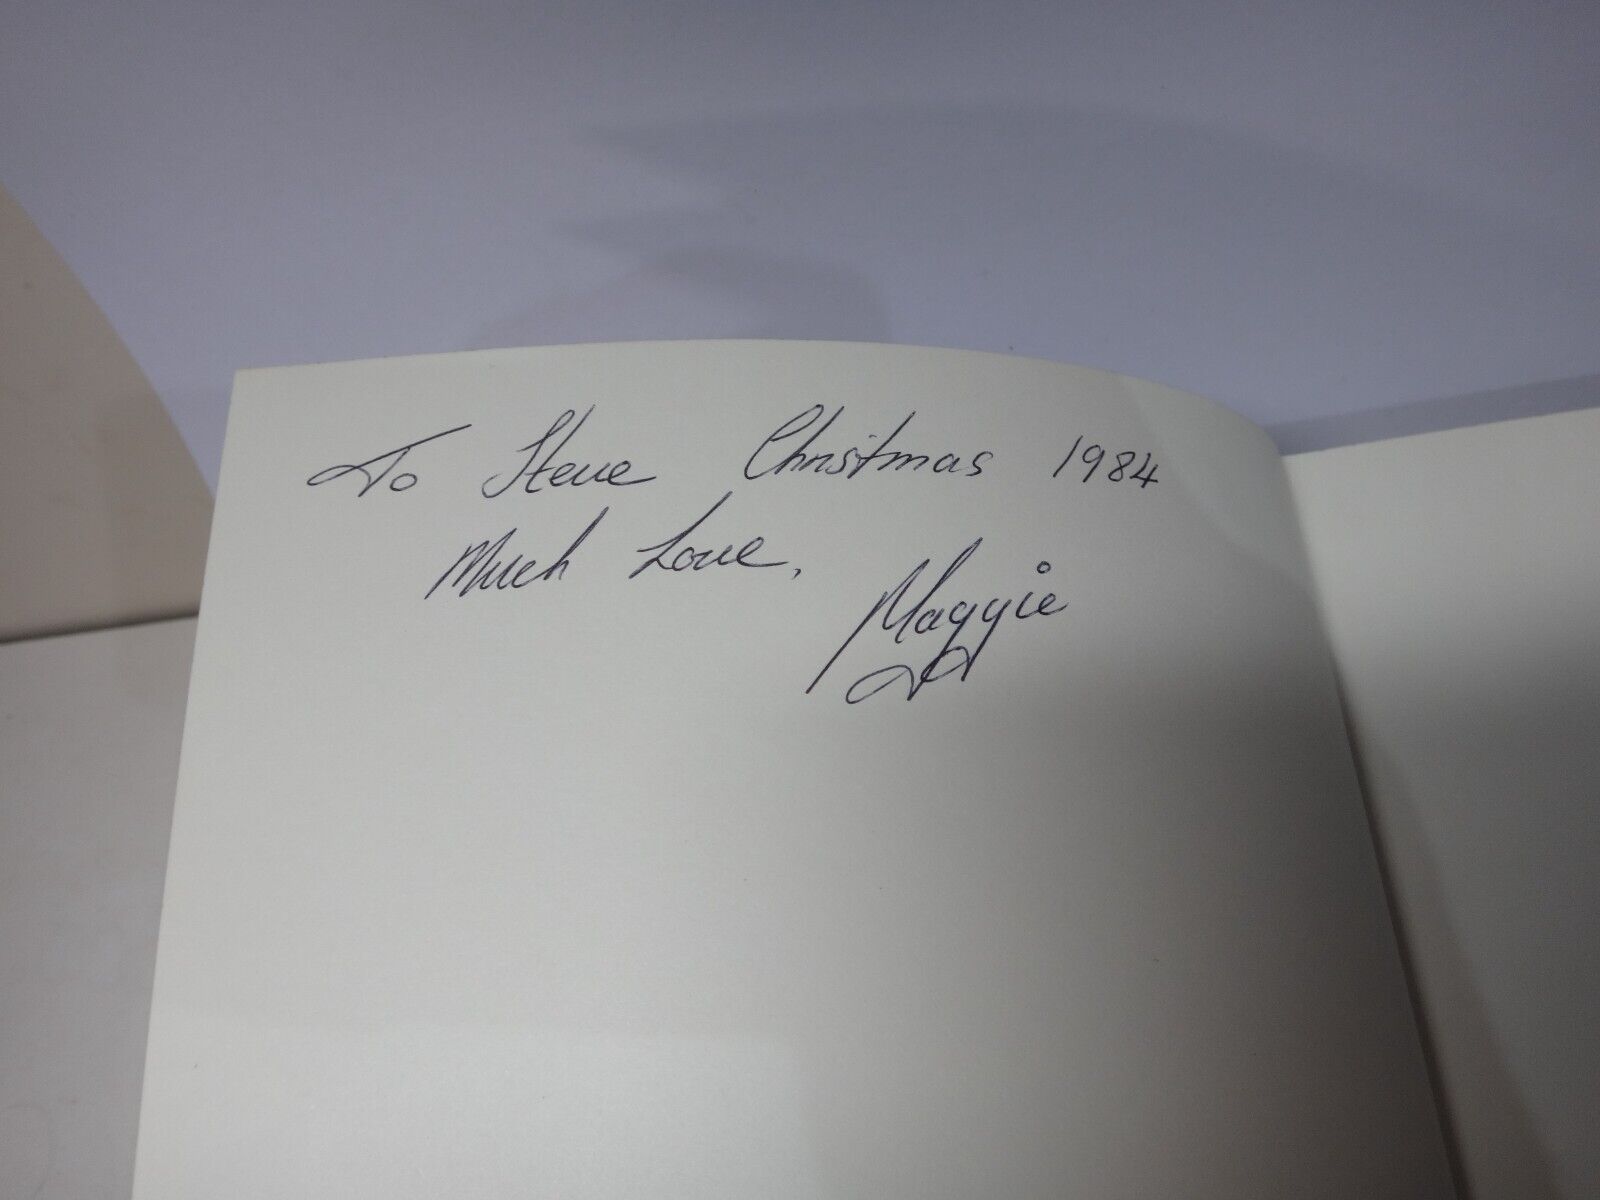 To Steve Christmas 1984
Much Love,
Maggie